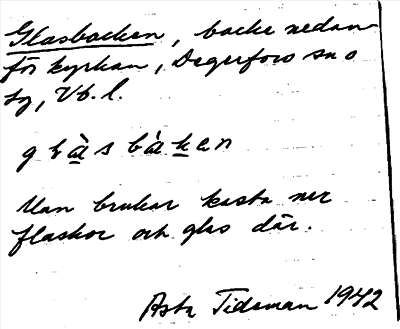 Glasbacken, backe nedan-
för kyrkan, Degerfors sn o
tg, Vb. l.
g b à s b à k e n
Man brukar kasta ner
flaskor och glas där.
Asta Tideman 1942